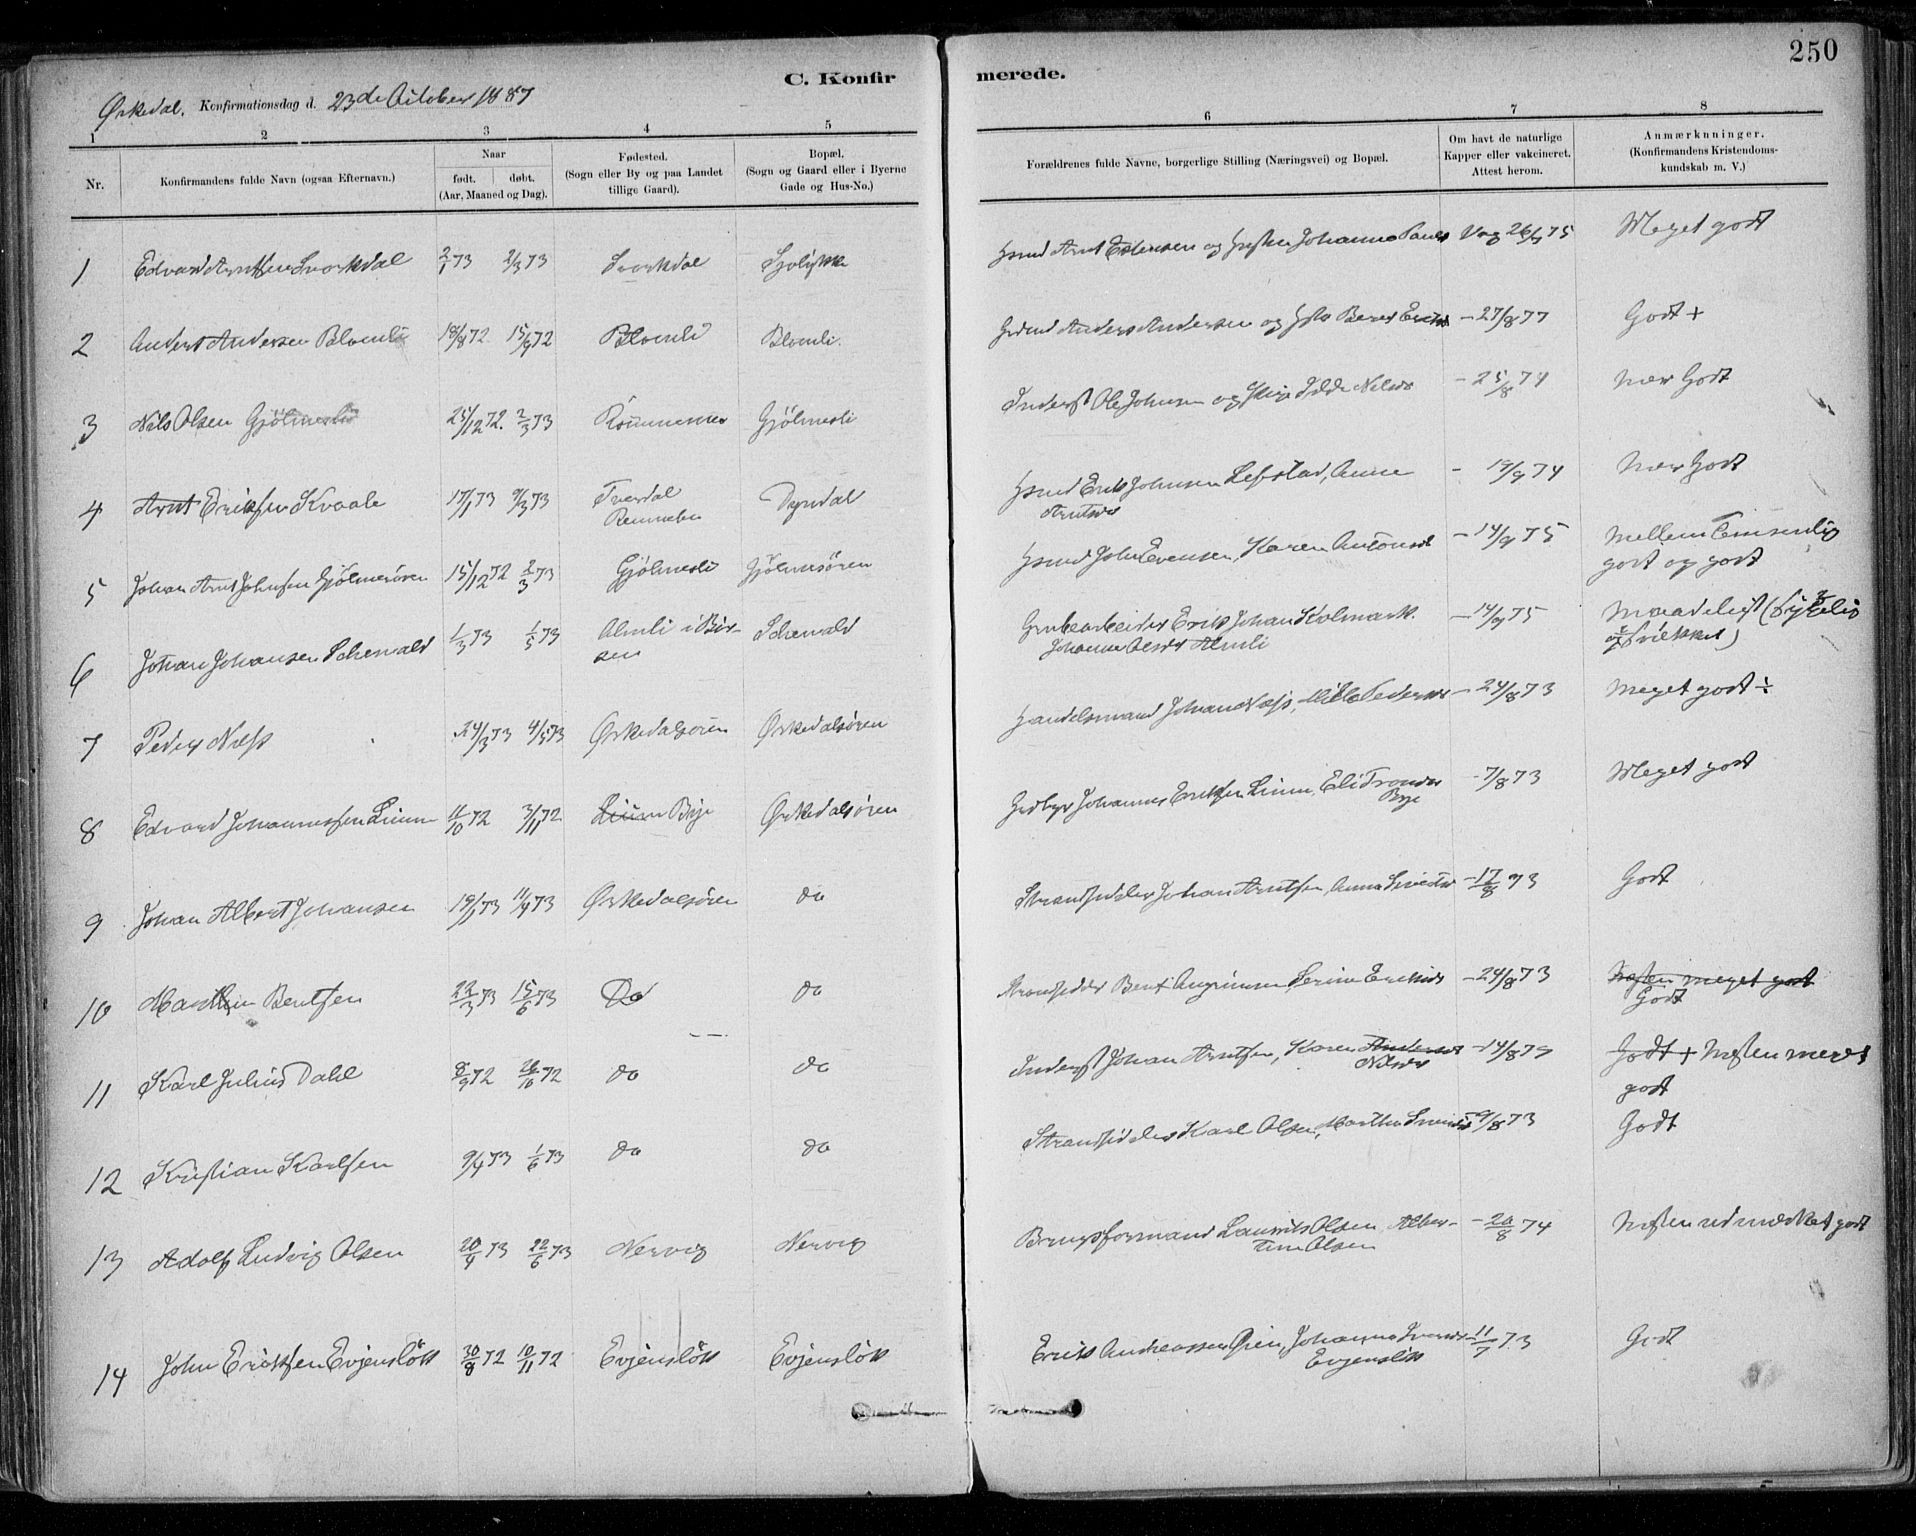 250
C. Konfirmerede.
Ørkedal. Konfirmationsdag d. 23de October 1887
1 2 3 4 5 6 7 8
Nr.
Konfirmandens fulde Navn (ogsaa Efternavn.)
Naar
født. døbt.
(Aar, Maaned og Dag).
Fødested.
(Sogn eller By og paa Landet
tillige Gaard).
Bopæl.
(Sogn og Gaard eller i Byerne
Gade og Hus-No.)
Forældrenes fulde Navne, borgerlige Stilling (Næringsvei) og Bopæl.
Om havt de naturlige
Kapper eller vakcineret.
Attest herom.
Anmærkninger.
(Konfirmandens Kristendoms-
kundskab m. V.)
1 Edvard Arntsen Svorkdal 2/1 73 2/3 73 Svorkdal Arnt Estensen og Johanna Vac 26/9 75 Meget godt
2 Anders Andersen Blomli 18/8 72 15/9 72 Blomli Blomli. Anders Andersen og Beret - 27/8 77 Godt +
3 Nils Olsen Gjölmesli 25/12 72. 2/3 73 Gjölmesli Inderst Ole Johnsen og Nilsdr - 25/8 74 Nær Godt
4 Arnt Eriksen Kvaale 17/1 73 9/3 73 Tverdal
Rennebu Dyrdal Erik Johnsen Lefstad, Anne
Arntsdr - 19/9 74 Nær Godt
5 Johan Arnt Johnsen Gjölmesøren 15/12 72 2/3 73 Gjølmesli Gjølmesøren John Evensen, Karen Antonsd - 14/9 75 Mellem Temmelig
godt og godt
6 Johan Johansen Schewald 1/3 73 1/5 73 Almli i Bør-
sen Schewald Grubearbeider Erik Johan Kolmark.
Johanna Olsdr Almli - 14/9 75 Maadeligt
7 Peder Næss 24/3 73 4/5 73 Ørkedalsören Ørkedalsøren Handelsmand Johan Næss, Pedersdr - 24/8 73 Meget godt ÷
8 Edvard Johannessen Lium 11/10 72 3/11 72 Lium Bye Ørkedalsøren Johannes Eriksen Lium, Eli Trondsdr
Bye - 7/8 73 Meget godt
9 Johan Albert Johansen 19/1 73 11/4 73 Ørkedalsören do Strandsidder Johan Arntsen, Anna - 17/8 73 Godt
10 Martin Bentsen 22/3 73 15/6 73 Do do Strandsidder Bent Serine Eriksdr - 24/8 73 Næsten meget godt
Godt
11 Karl Julius Dahl 8/9 72 26/10 72 do do Inderst Johan Arntsen, Karen Andersdr
Nilsdr - 14/8 79 Godt + Næsten meget
godt
12 Kristian Karlsen 9/4 73 1/6 73 do do Strandsidder Karl Olsen, Martha - 9/8 73 Godt
13 Adolf Ludvig Olsen 20/4 73 22/6 73 Nervig Nervig Brugsformand Laurits Olsen, Alber-
tine Olsen - 20/8 74 Næsten udmærket godt
14 John Eriksen Evjensløkk 30/8 72 10/11 72 Evjensløkk Evjensløkk Erik Andreassen Øien, Johanna
Evjensløkk - 11/7 73 Godt